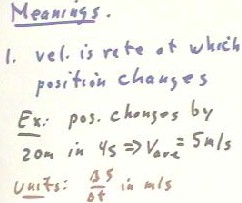 Meanings.
1. vel. is rate at which
position changes
Ex: pos. changes by
20m in 4s => Vave = 5m/s
Units: ΔS/Δt in m/s